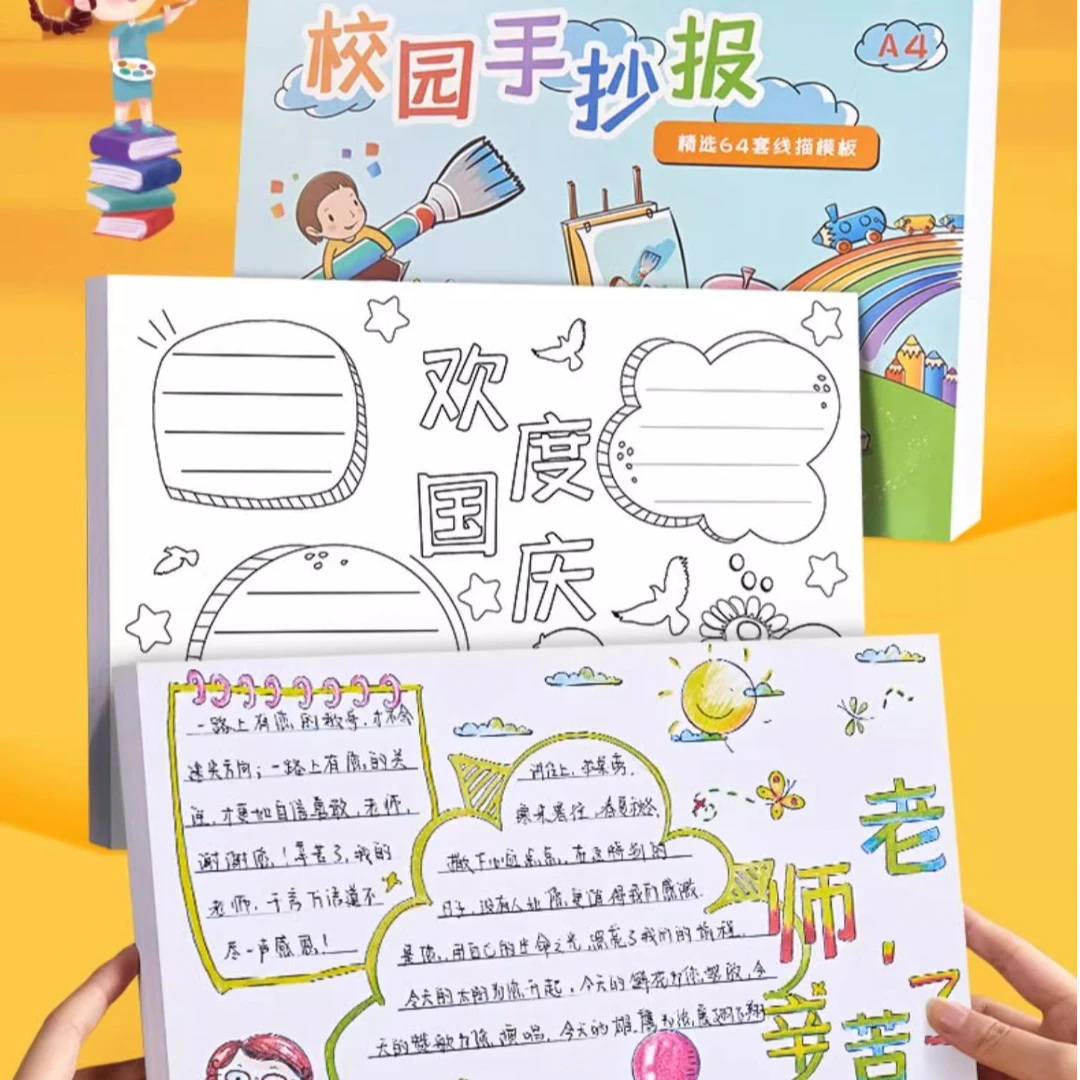 校园手抄报
A4
精选64套线描模板
欢度国庆
一路上有您的教导，才不会
迷失方向；一路上有您的关
注，才更加自信勇敢，老师，
谢谢您！辛苦了，我的
老师，千言万语道不
尽一声感恩！
寒来暑往，春夏秋冬
撒下心血点点，在这特别的
日子，没有人比您更值得我们感激，
是您，用自己的生命之光，照亮了我们的旅程，
今天的太阳为您升起，今天的鲜花为你绽放，今
天的赞歌为您演唱，今天的雄鹰为您展翅飞翔
老师·辛苦了